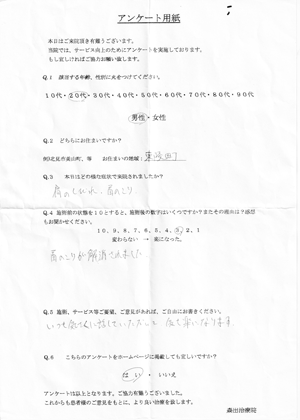 アンケート用紙
本日はご来院頂き有難うございます。
当院では、サービス向上のためにアンケートを実施しております。
もし宜しければご協力お願い致します。
Q.1 該当する年齢、性別に丸をつけてください。
10代・20代・30代・40代・50代・60代・70代・80代・90代
男性・女性
Q.2 どちらにお住まいですか?
例)北見市美山町、等 お住まいの地域:
Q.3 本日はどの様な症状で来院されましたか?
肩のしびれ、首のこり
Q.4 施術前の状態を10とすると、施術後の数字はいくつですか?またその理由は?感想
もお聞かせください。
10、9、8、7、6、5、4、3、2、1
変わらない → 楽になった。
首のこりが解消されました
Q.5 施術、サービス等ご要望、ご意見があれば、ご自由にお書きください。
いつも
Q.6 こちらのアンケートをホームページに掲載しても宜しいですか?
はい ・ いいえ
アンケートは以上となります。ご協力有難うございました。
これからも患者様のご意見をもとに、より良い治療を致します。
森出治療院